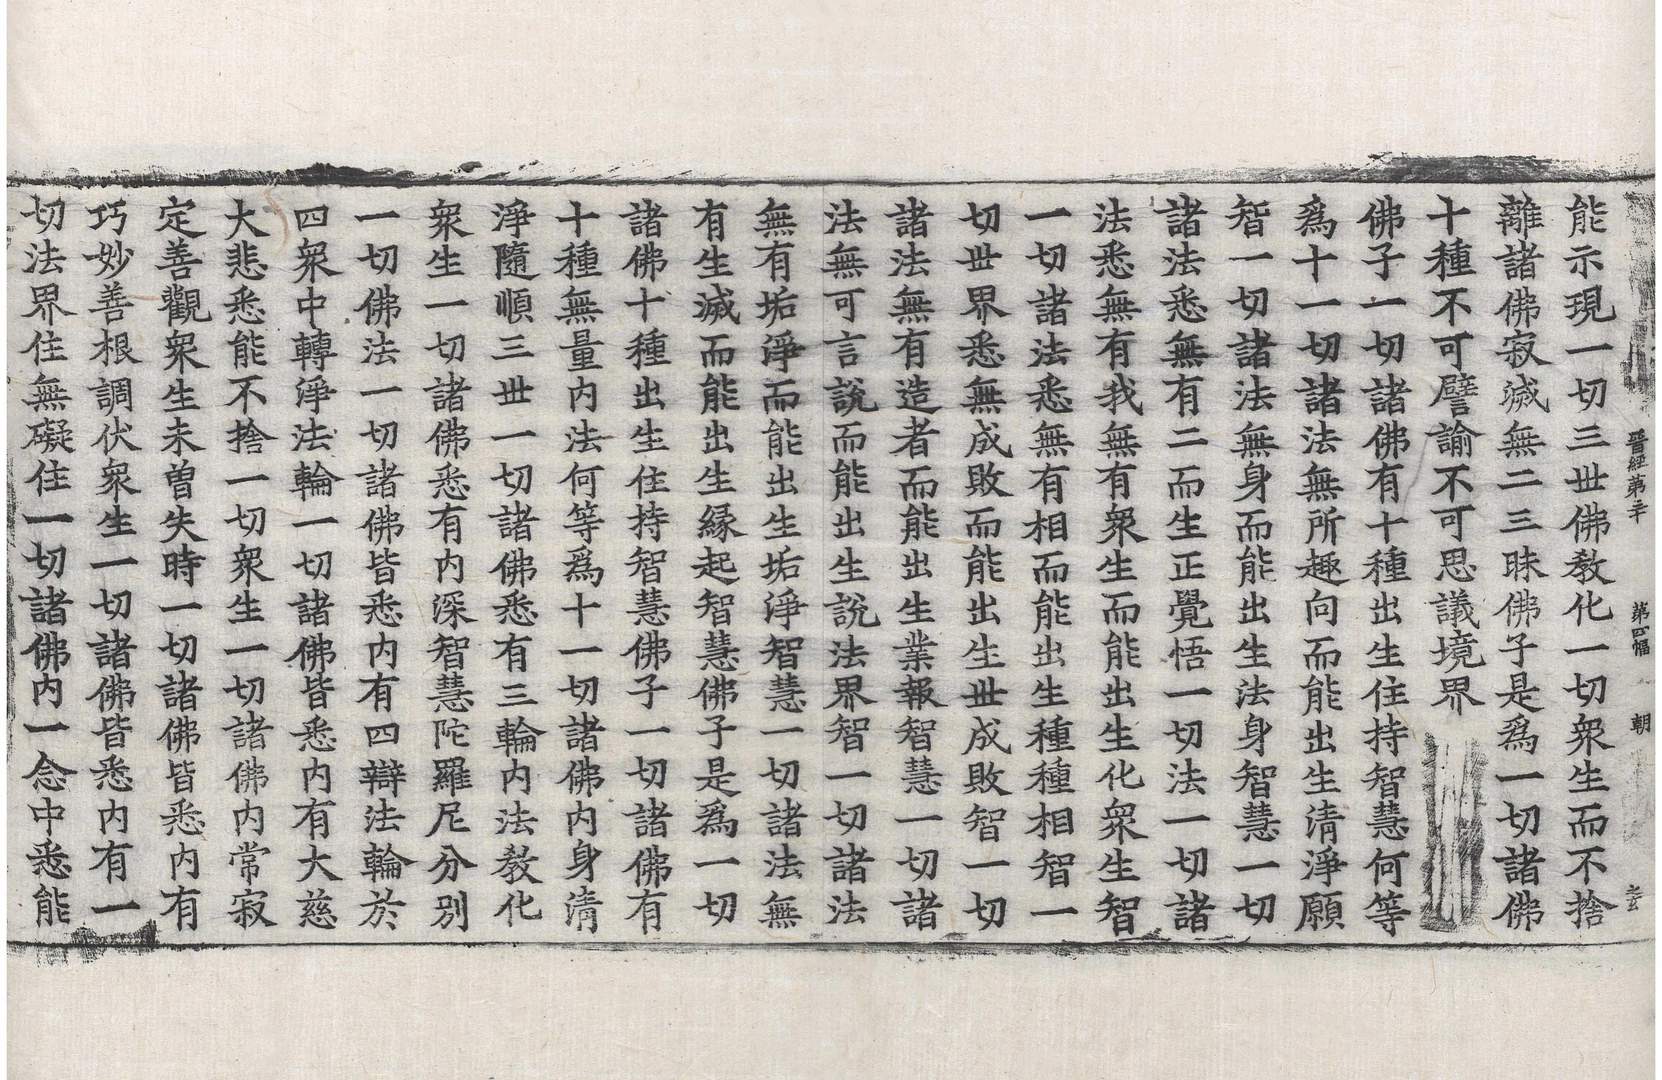 晉經第三十 第四幅 朝 玄
能示現一切三世佛教化一切衆生而不捨
離諸佛寂滅無二三昧佛子是爲一切諸佛
十種不可譬諭不可思議境界
佛子一切諸佛有十種出生住持智慧何等
爲十一切諸法無所趣向而能出生清淨願
智一切諸法無身而能出生法身智慧一切
諸法悉無有二而生正覺悟一切法一切諸
法悉無有我無有衆生而能出生化衆生智
一切諸法悉無有相而能出生種種相智一
切世界悉無成敗而能出生世成敗智一切
諸法無有造者而能出生業報智慧一切諸
法無可言說而能出生說法界智一切諸法
無有垢淨而能出生垢淨智慧一切諸法無
有生滅而能出生緣起智慧佛子是爲一切
諸佛十種出生住持智慧佛子一切諸佛有
十種無量内法何等爲十一切諸佛内身清
淨隨順三世一切諸佛悉有三輪内法教化
衆生一切諸佛悉有内深智慧陀羅尼分別
一切佛法一切諸佛皆悉内有四辯法輪於
四衆中轉淨法輪一切諸佛皆悉内有大慈
大悲悉能不捨一切衆生一切諸佛内常寂
定善觀衆生未曽失時一切諸佛皆悉内有
巧妙善根調伏衆生一切諸佛皆悉内有一
切法界住無礙住一切諸佛内一念中悉能